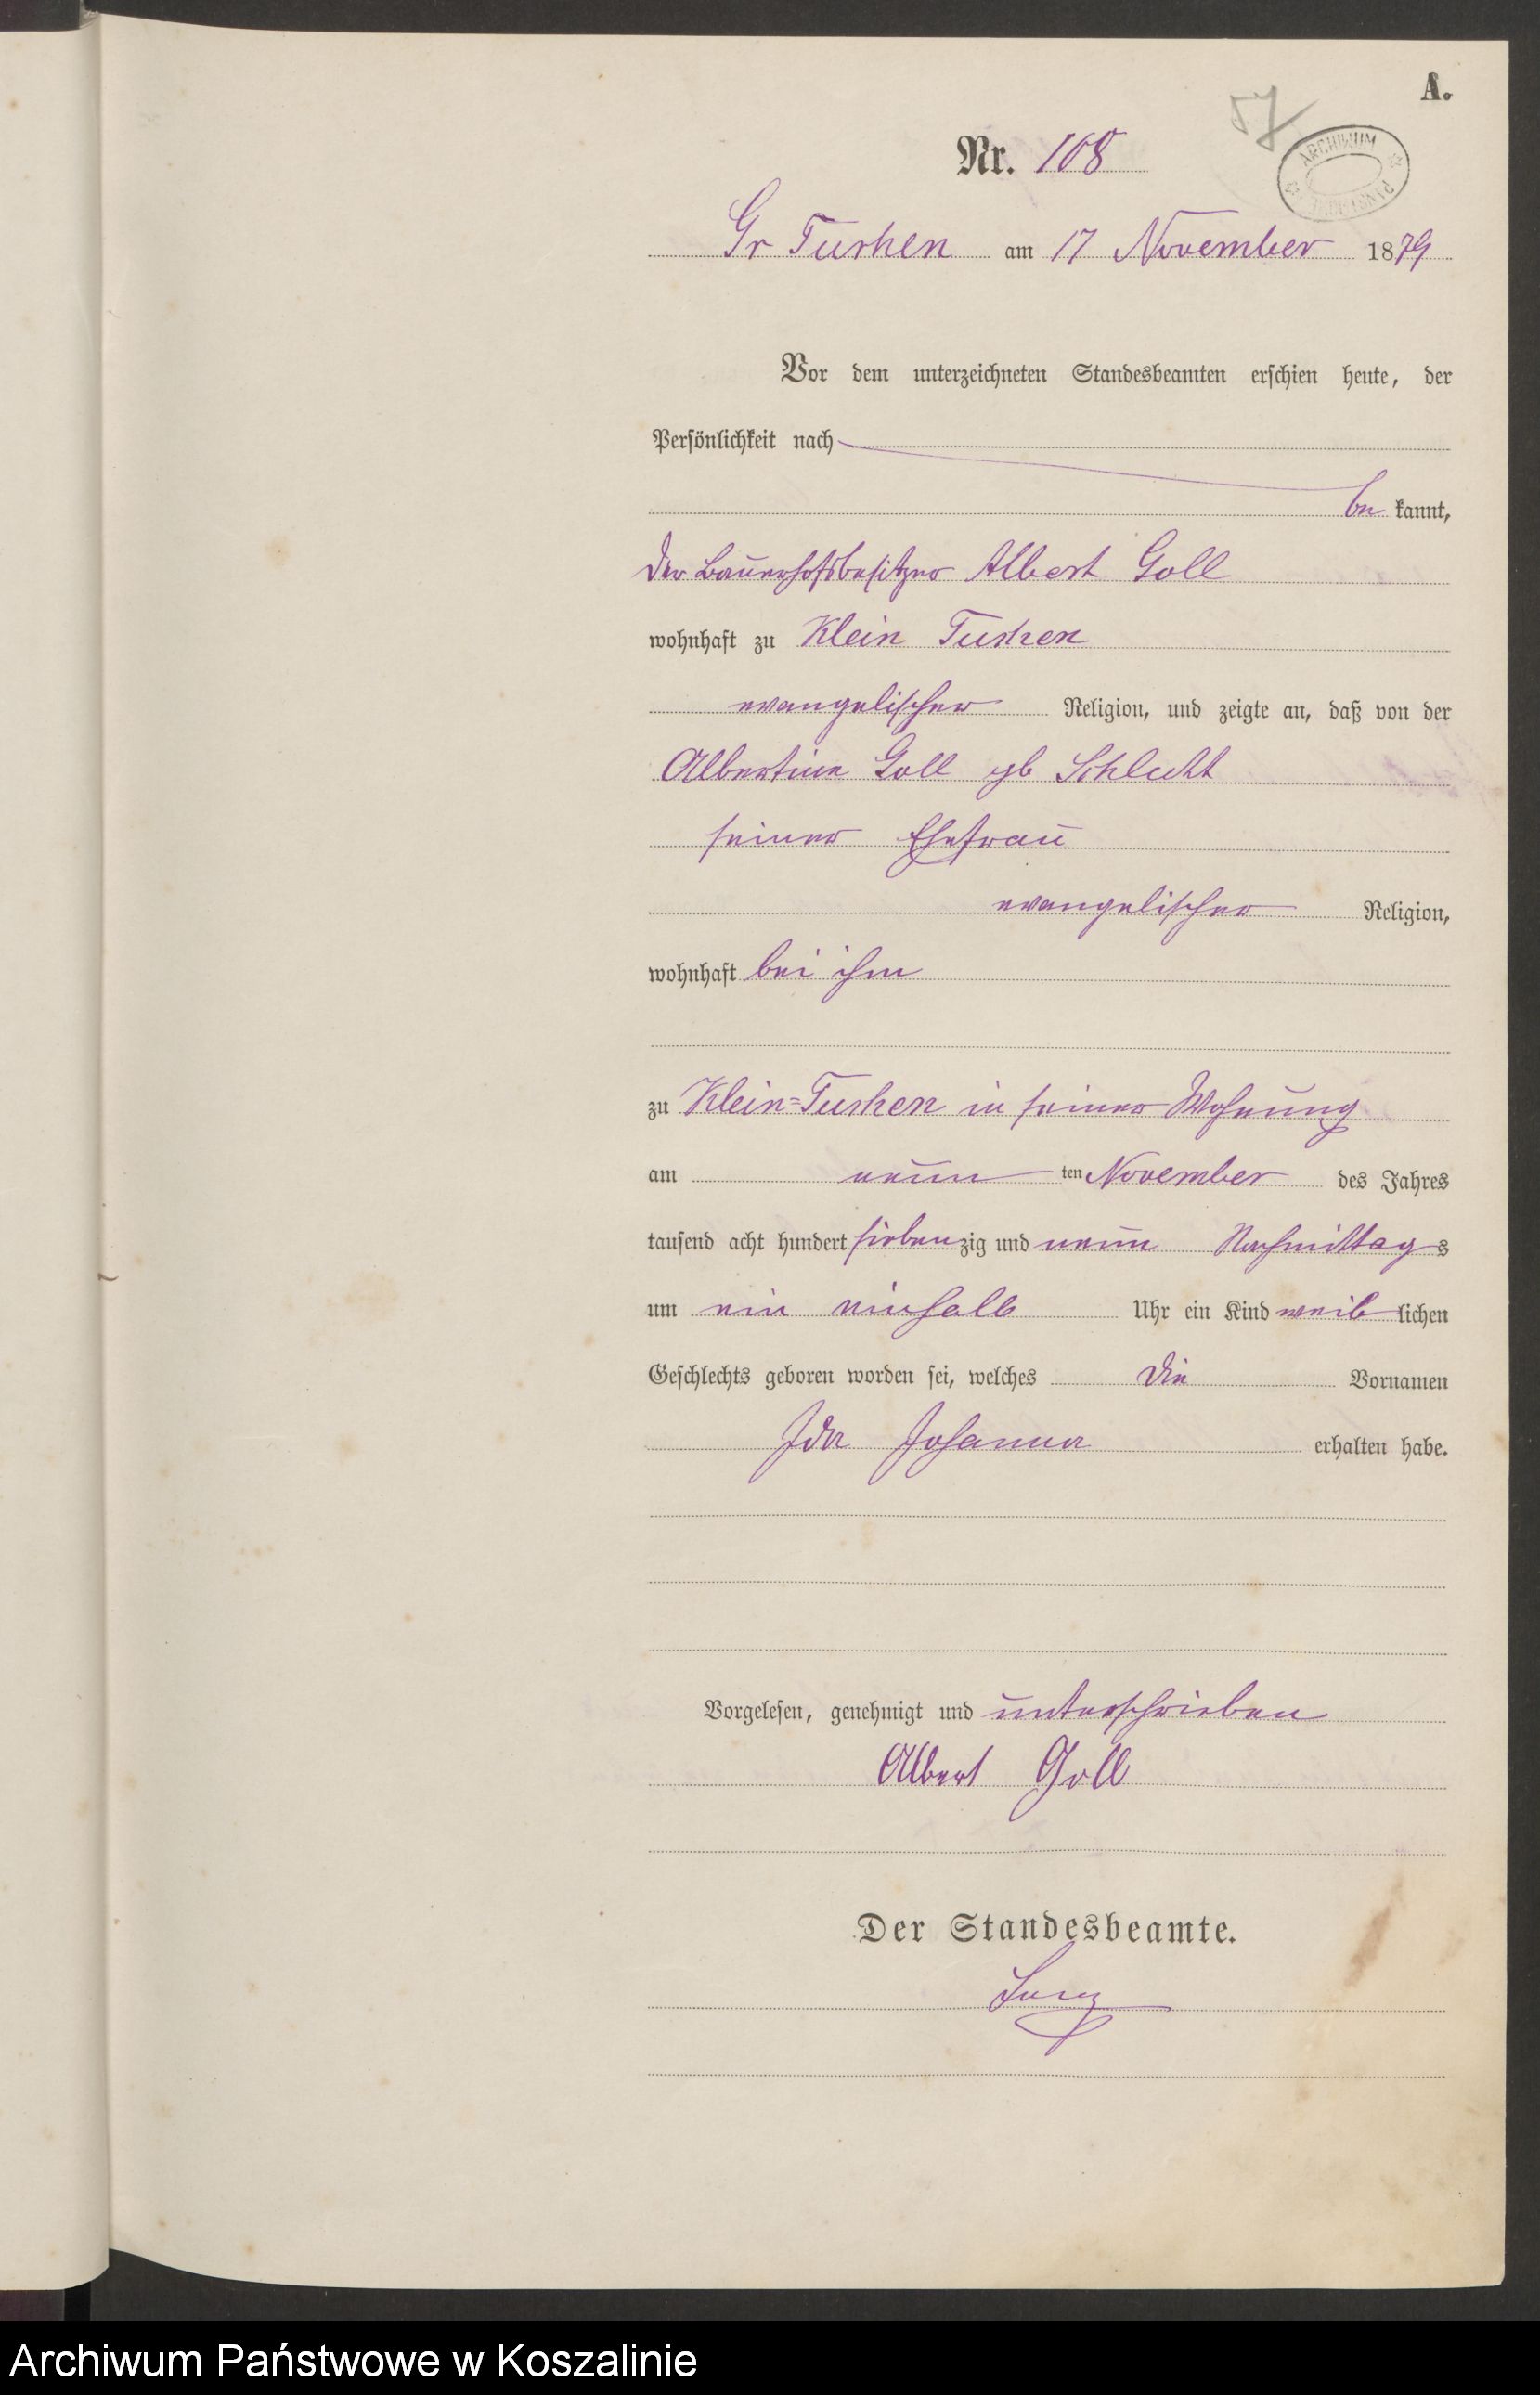 A.
57
Nr. 108
ARCHIWUM PAŃSTWOWE
Gr Tuchen am 17 November 1879
Vor dem unterzeichneten Standesbeamten erschien heute, der
Persönlichkeit nach
be kannt,
der Bauerhofsbesitzer Albert Goll
wohnhaft zu Klein Tuchen
evangelischer Religion, und zeigte an, daß von der
Albertine Goll gb Schlicht
seiner Ehefrau
evangelischer Religion,
wohnhaft bei ihm
zu Klein=Tuchen in seiner Wohnung
am neun ten November des Jahres
tausend acht hundert siebenzig und neun Nachmittag s
um ein einhalb Uhr ein Kind weib lichen
Geschlechts geboren worden sei, welches die Vornamen
Ida Johanna erhalten habe.
Vorgelesen, genehmigt und unterschrieben
Albert Goll
Der Standesbeamte.
Archiwum Państwowe w Koszalinie